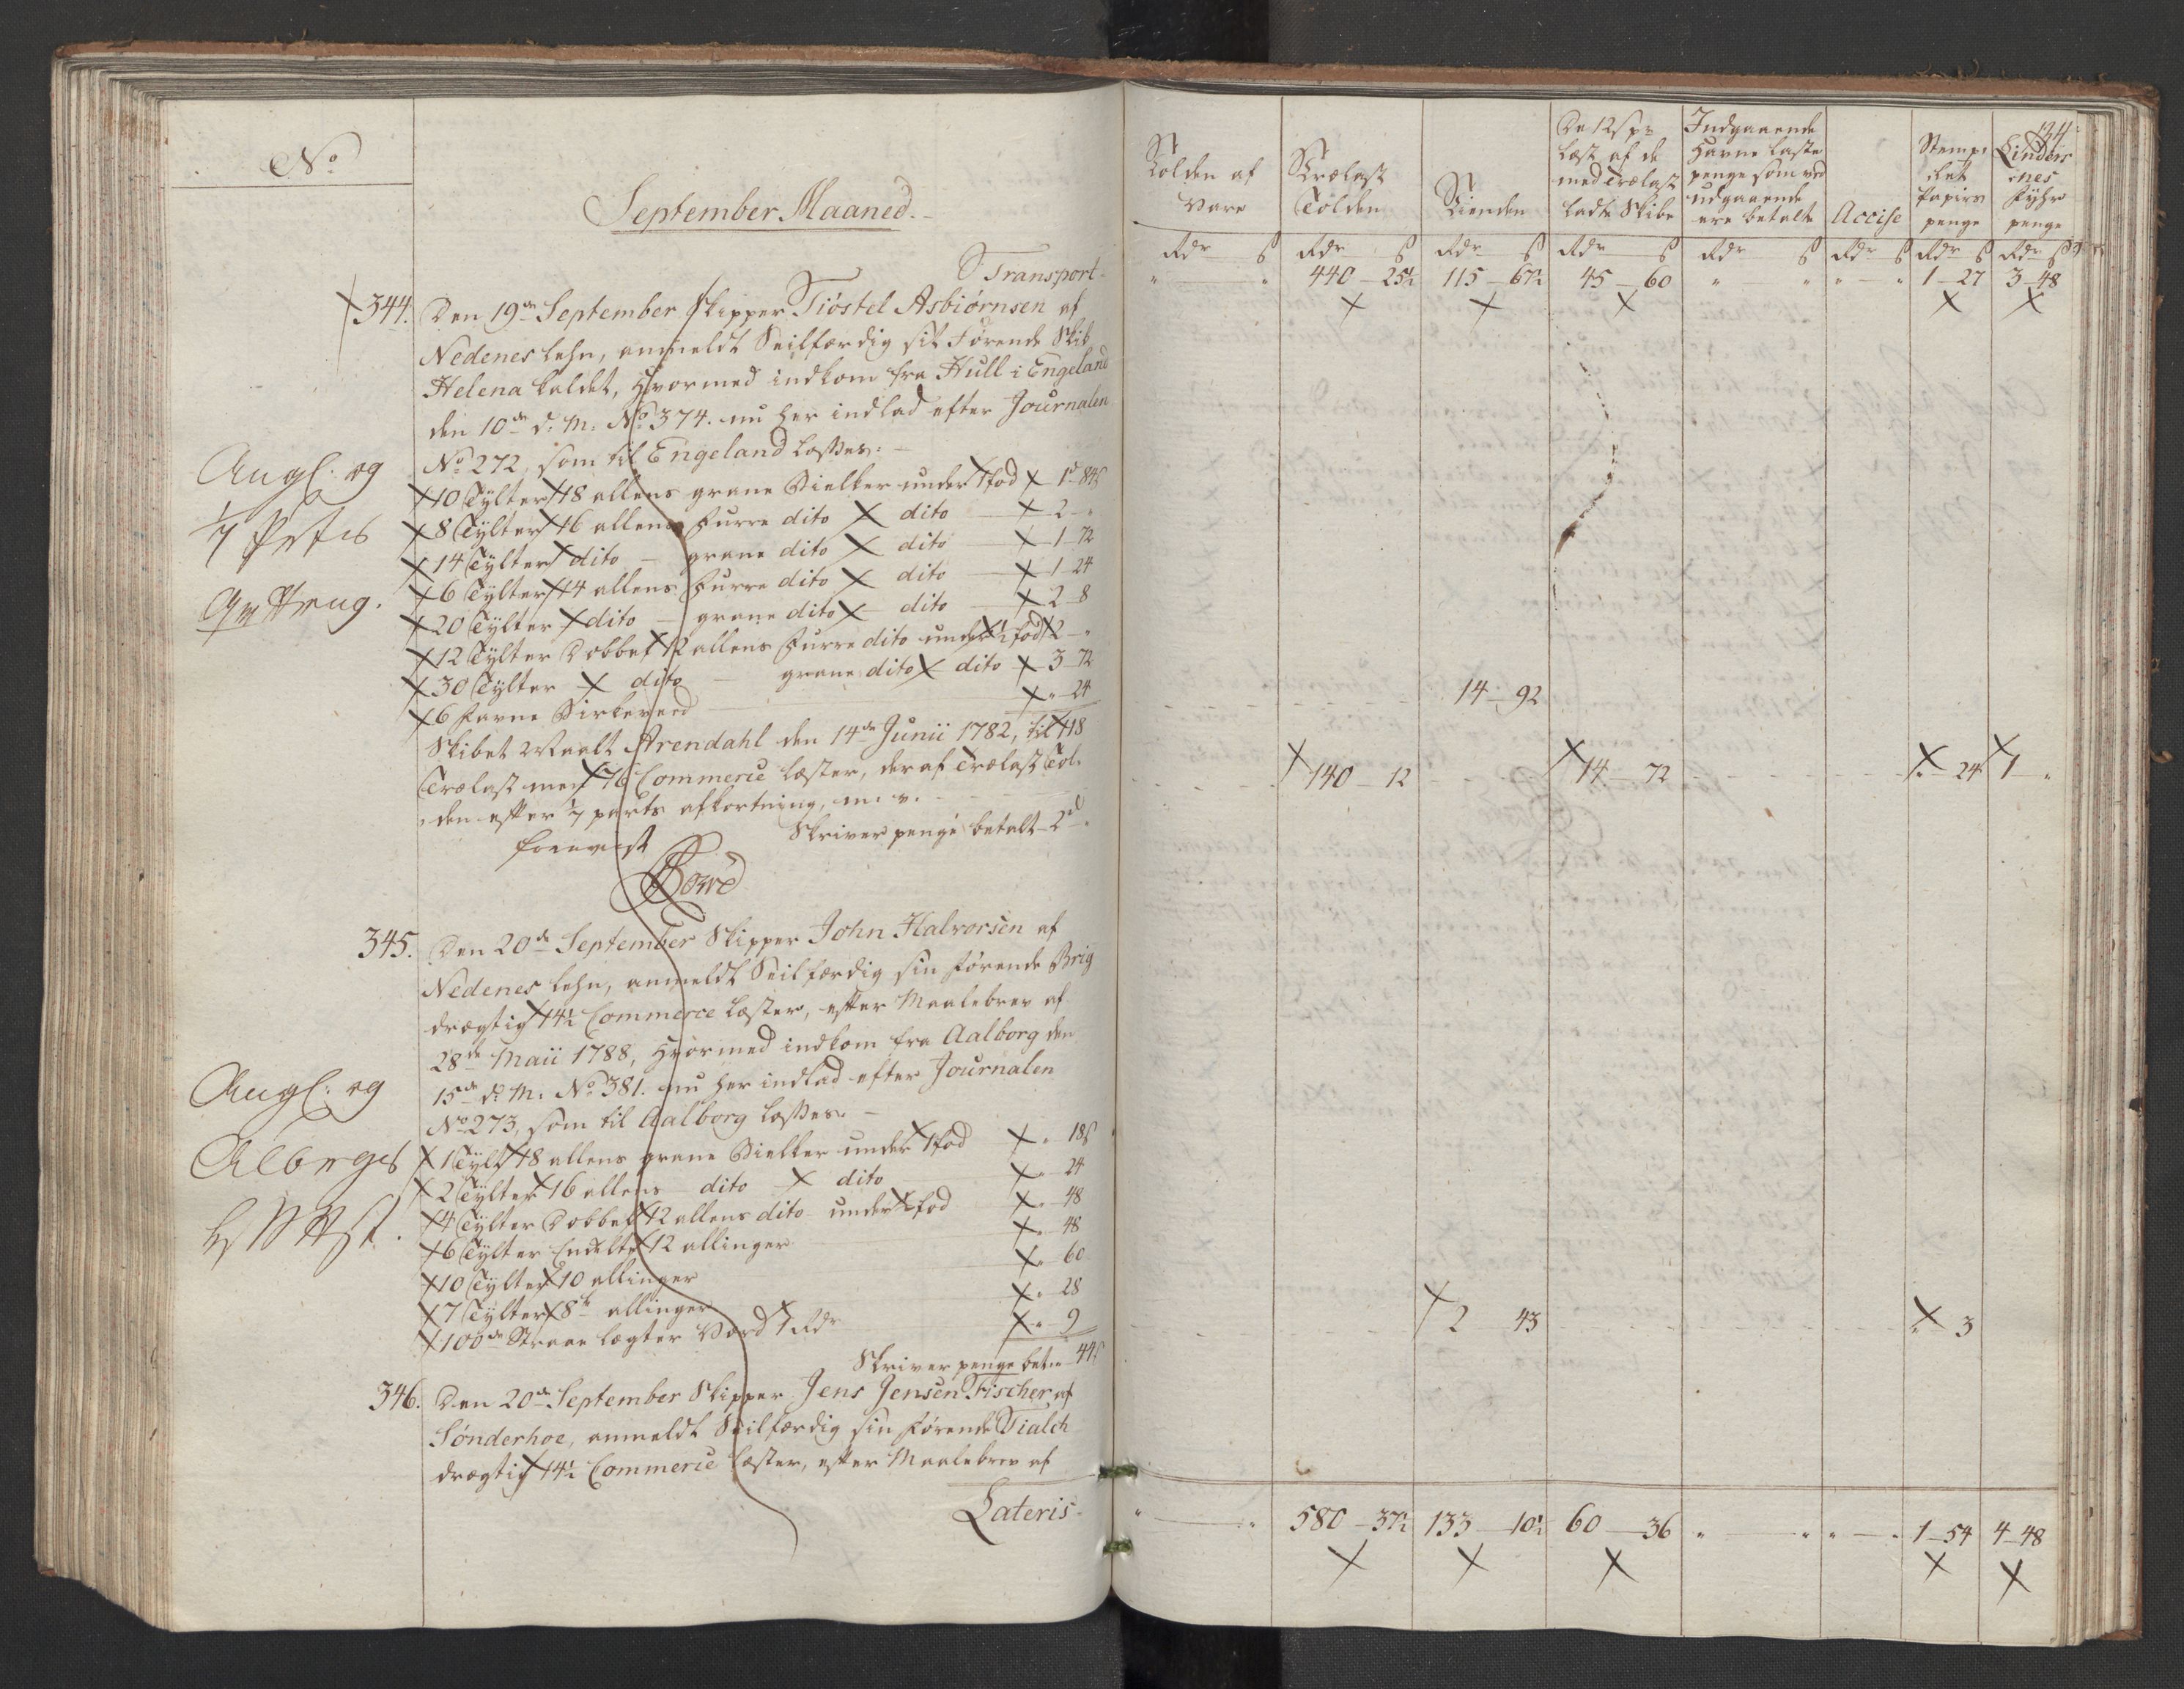 No
September Maaned.
Transport
344. Den 19de September Skipper Tiøstel Asbiørnsen af
Nedenes Lehn, anmeldt Seilfærdig sit Førende Skib
Helena kaldet, Hvormed indkom fra Hull i Engeland
den 10de d: M: No 374. nu her indlad efter Journalen
No 272, som til Engeland losses.
10 Tylter 18 allens grane Bielker under 1 fod 1d 84s
8 Tylter 16 allens Furre dito dito 2 "
14 Tylter dito grane dito dito 1 72
6 Tylter 14 allens Furre dito dito 1 24
20 Tylter dito grane dito dito 2 8
12 Tylter Dobbel 12 allens Furre dito under ½ fod 2 "
30 Tylter dito grane dito dito 3 72
6 Favne Birkeved " 24
Skibet Maalt Arendahl den 14de Junii 1782, til 118
Trælast men 76 Commerce Læster, deraf Trælast Tol-
den efter 1/7 parts afkortning, m. v.
Skriver penge betalt 2d "
345. Den 20de September Skipper John Halvorsen af
Nedenes Lehn, anmeldt Seilfærdig sin førende Brig
drægtig 14½ Commerce Læster, efter Maalebrev af
28de Maii 1788, Hvormed indkom fra Aalborg den
15de d: M: No 381. nu her indlad efter Journalen
No 273, som til Aalborg losses.
1 Tylt 18 allens grane Bielker under 1 fod " 18s
2 Tylter 16 allens dito dito " 24
4 Tylter Dobbel 12 allens dito under ½ fod " 48
6 Tylter Enkelte 12 allinger " 48
10 Tylter 10 allinger " 60
7 Tylter 8te allinger " 28
100de Straae lægter Værd 1 Rdr " 9
Skriver penge bet: 44s
346. Den 20de September Skipper Jens Jensen Fischer af
Sønderhoe, anmeldt Seilfærdig sin førende Tialch
drægtig 14½ Commerce Læster, efter Maalebrev af
Lateris
Angl: og
1/7 Parts
Angl: og
Alborgs
134
Tolden af Vare
Trælast Tolden
Tienden
De 12s pr Læst af de med Trælast ladte Skibe
Indgaaende Havne Laste penge som ved udgaaende ere betalte
Accise
Stemp- let Papiirs penge
Lindes- nes Fyhr penge
Rdr s Rdr s Rdr s Rdr s Rdr s Rdr s Rdr s Rdr s
" " 440 25½ 115 67½ 45 60 " " " " 1 27 3 48
14 92
140 12 14 72 " 24 1 "
2 43 " 3
" " 580 37½ 133 10½ 60 36 " " " " 1 54 4 48